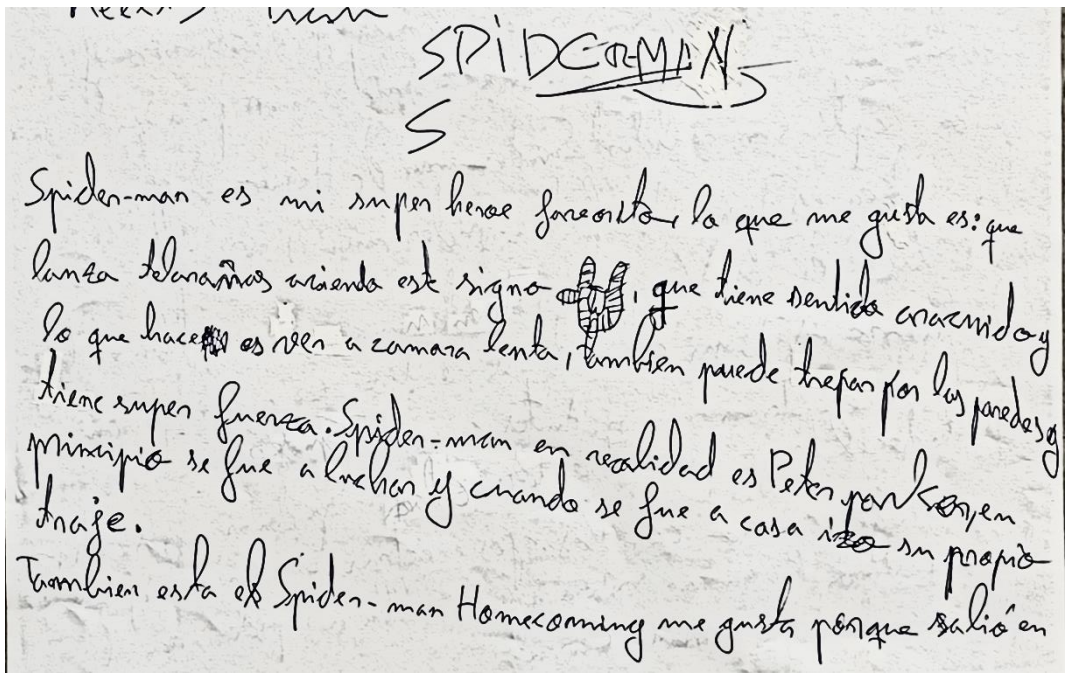 SPiDERMAN
S
Spider-man es mi super heroe faborito, lo que me gusta es: que
lanza telarañas aciendo este signo , que tiene sentido aracnido y
lo que hace es ver a camara lenta, tambien puede trepar por las paredes y
tiene super fuerza. Spider-man en realidad es Peter parker, en
principio se fue a luchar y cuando se fue a casa izo su propio
traje.
Tambien esta el Spider-man Homecoming me gusta porque salió en